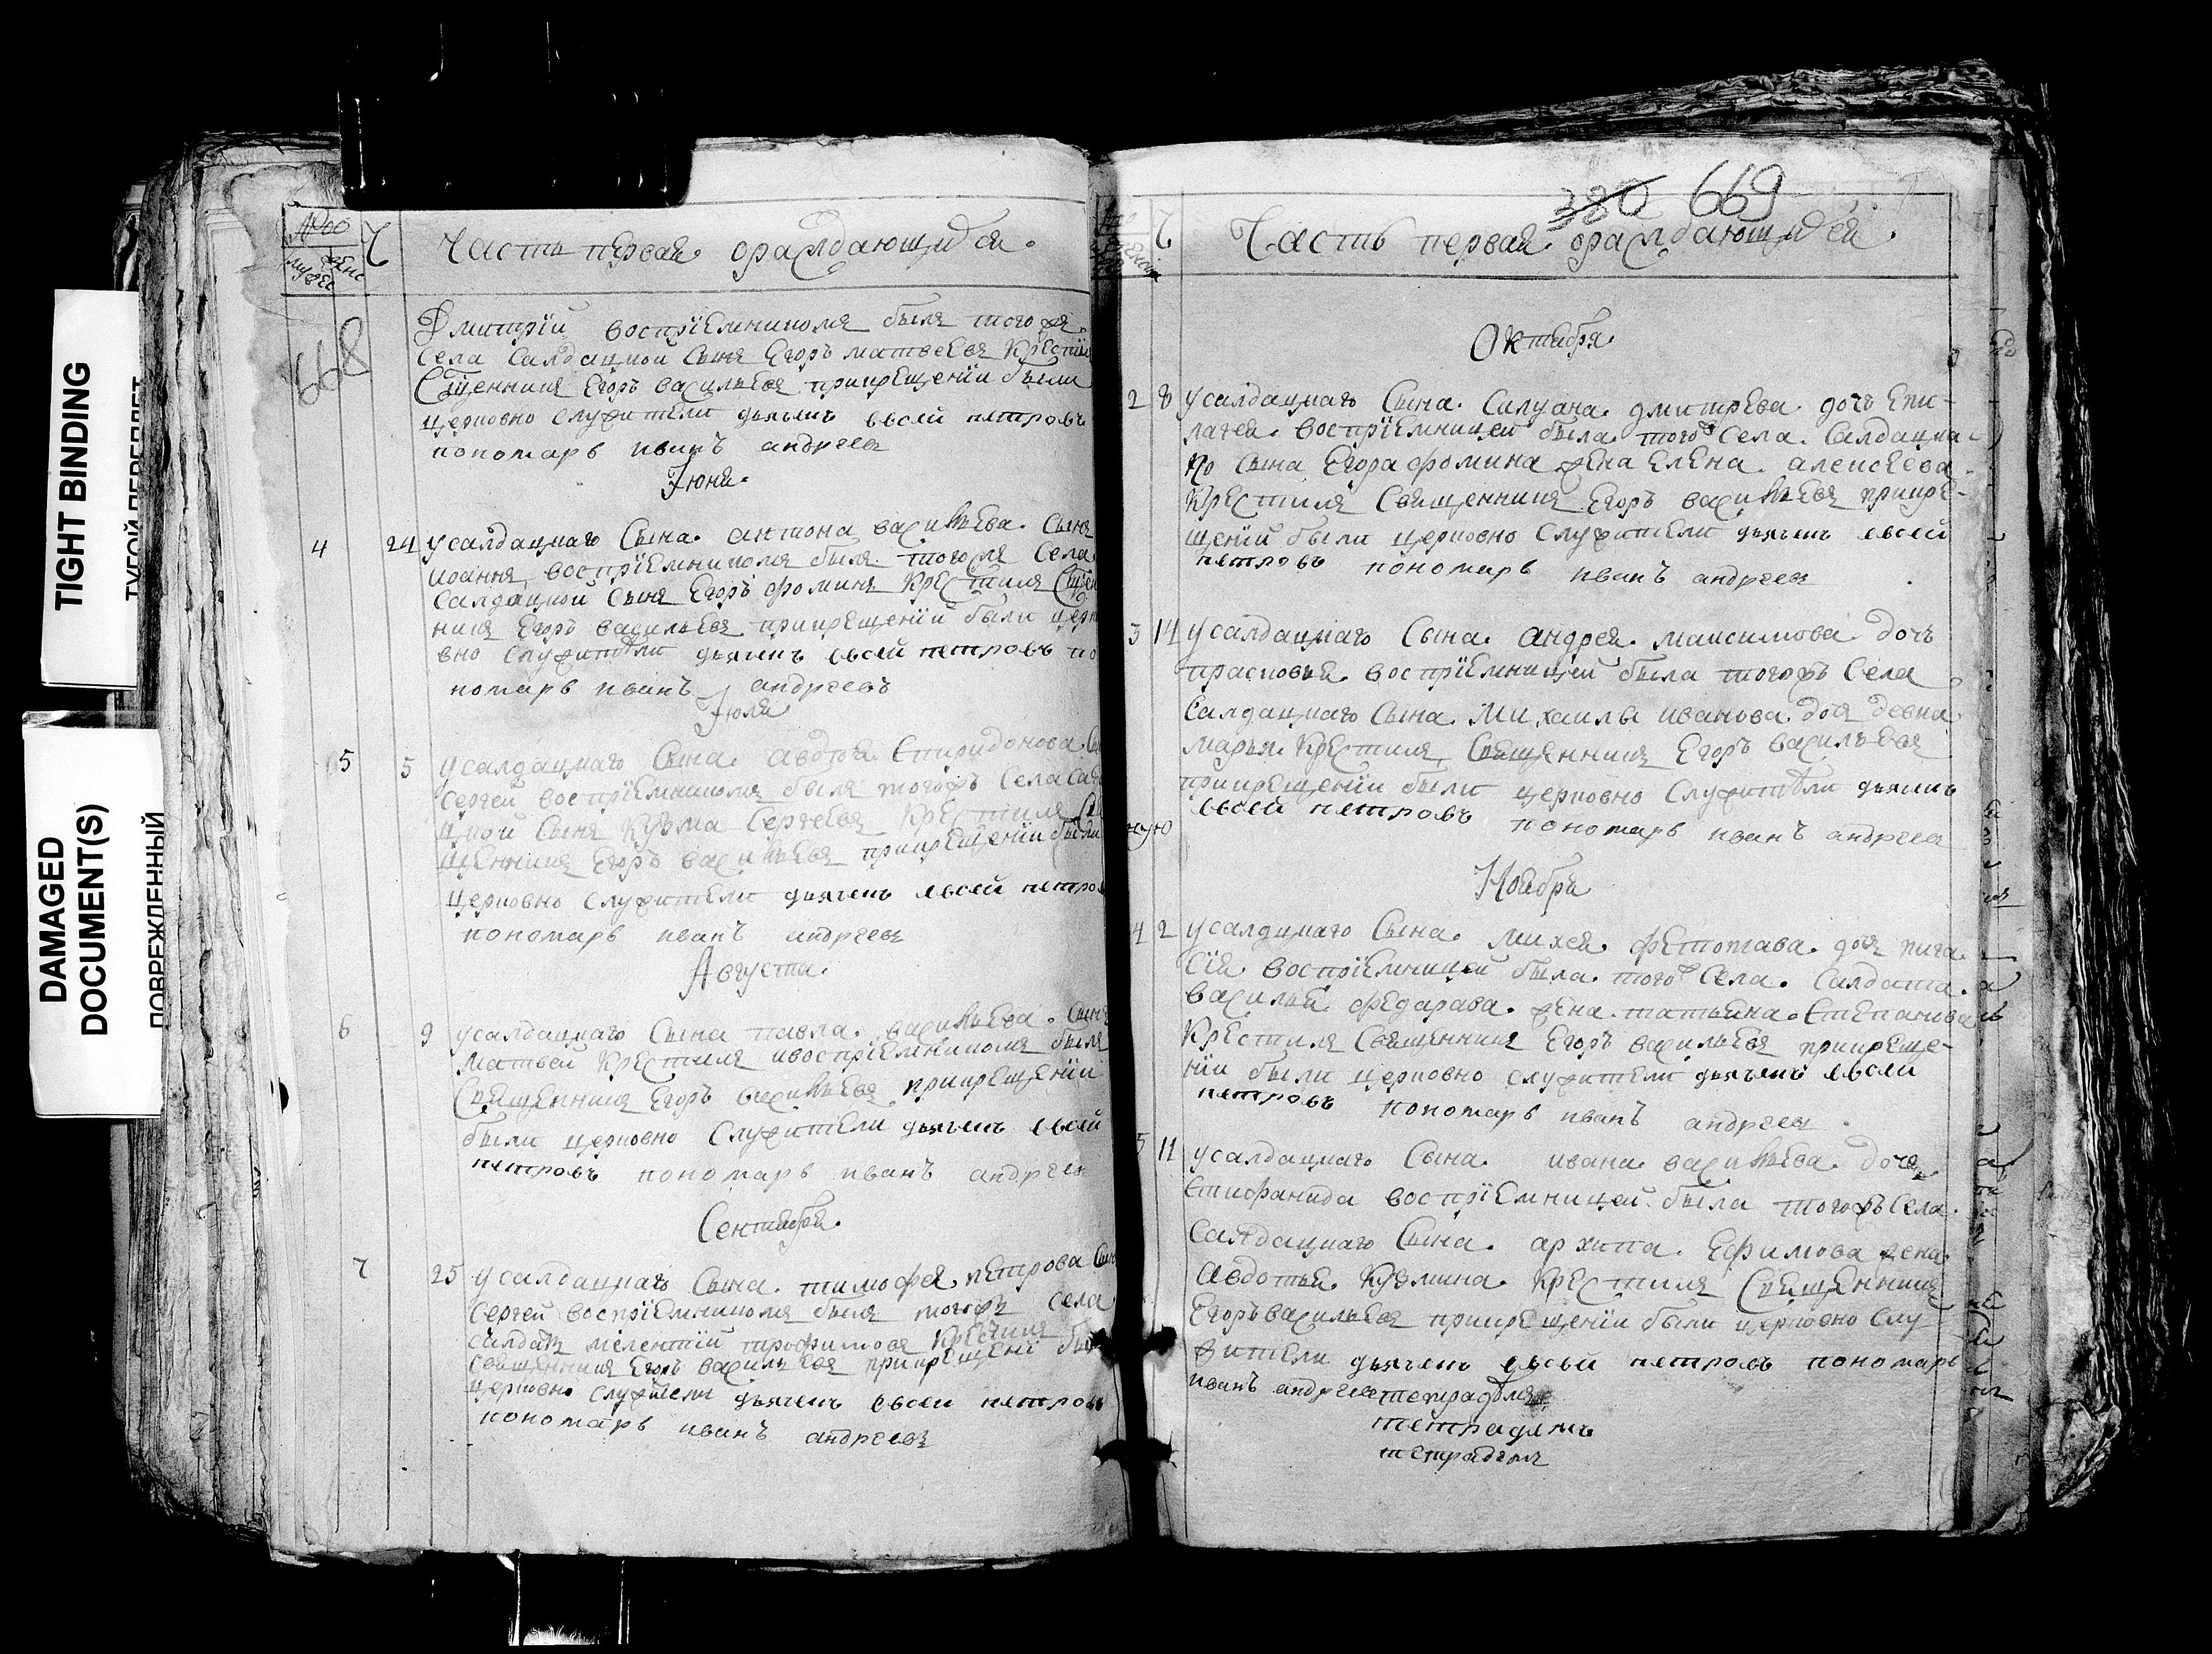 TIGHT BINDING
ТУГОЙ ПЕРЕПЛЕТ
DAMAGED
DOCUMENT(S)
ПОВРЕЖДЕННЫЙ
668
Ч
Часть первая ораждающихся.
Дмитрїй воспрїемникомъ былъ того же
села салдацкой сынъ Егоръ матвеевъ крести
Сщенникъ Егоръ васильевъ прикрещенїи были
церковно служители дьячекъ евсей петровъ
пономарь иванъ андреев
Іюня.
4 24 усалдацкаго сына. антона васильева. сынъ
иоаннъ, воспрїемникомъ былъ того же села
салдацкой сынъ Егоръ фоминъ крестилъ Сщен
никъ Егоръ васильевъ прикрещенїи были церко
вно служители дьячекъ евсей петровъ по
номарь иванъ андреевъ
Іюля
5 5 усалдацкаго сына. авдѣя спиридонова
сергей воспрїемникомъ былъ тогожъ села сал
цкой сынъ кузма сергеевъ крестилъ
щенникъ Егоръ васильевъ прикрещенїи были
церковно служители дьячекъ евсей петров
пономарь иванъ андреевъ
Августа.
6 9 усалдацкаго сына павла. васильева. сынъ
матвей крестилъ ивоспрїемникомъ былъ
Священникъ Егоръ васильевъ прикрещенїи
были церковно служители дьячекъ евсей
петровъ пономарь иванъ андреев
Сентября.
7 25 усалдацкаго сына. тимофея петрова сын
сергей воспрїемникомъ былъ тогожъ села
салдатъ мелентїй трофимовъ крестилъ
священникъ Егоръ васильевъ прикрещенї бы
церковно служители дьячекъ евсей петровъ
пономарь иванъ андреевъ
380 669
Ч
Часть первая ораждающихся.
Октября
2 8 усалдацкаго сына. силуана. дмитрева дочь Епи-
воспрїемницей была того ж села. салдацка-
го сына Егора фомина жена елена. алексеева.
крестилъ священникъ Егоръ васильевъ прикре-
щенїи были церковно служители дьячекъ евсей
петровъ пономарь иванъ андреев
3 14 усалдацкаго сына. андрея. максимова дочь
прасковья воспрїемницей была тогожъ села
салдацкаго сына. михаилы иванова. дочь девка
марья. крестилъ, священникъ Егоръ васильевъ
прикрещенїи были церковно служители дьячекъ
евсей петровъ пономарь иванъ андреев
Ноября
4 2 усалдацкаго сына. михея. дочь пела
гїя воспрїемницей была. того ж села. салдата.
василья федарава. жена. татьяна. степанова
крестилъ священникъ Егоръ васильевъ прикреще-
нїи были церковно служители дьячекъ евсей
петровъ пономарь иванъ андреев
5 11 усалдацкаго сына. ивана васильева. дочь
воспрїемницей была тогожъ села.
салдацкаго сына. архипа. Ефимова жена
авдотья кузмина. крестилъ священникъ
Егоръ васильевъ прикрещенїи были церковно слу
жители дьячекъ евсей петровъ пономарь
иванъ андреев
тетрадемъ